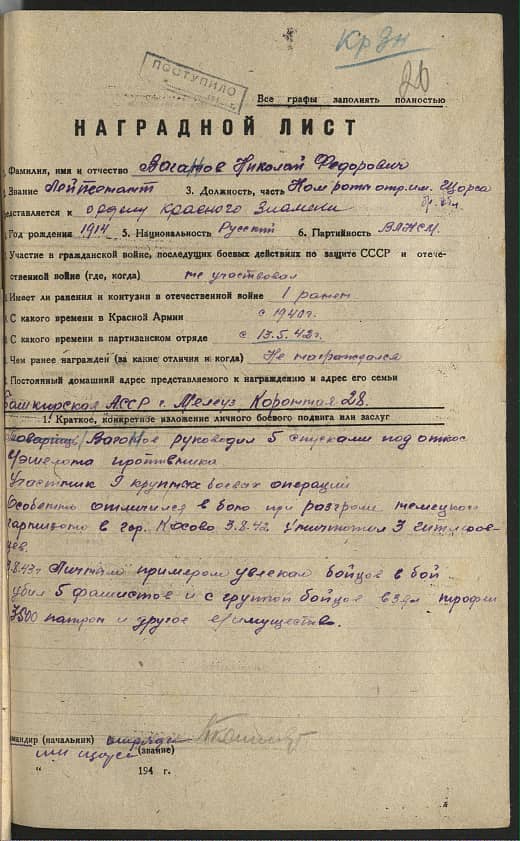 КрЗн
26
ПОСТУПИЛО
Все графы заполнять полностью
НАГРАДНОЙ ЛИСТ
Фамилия, имя и отчество Ваганов Николай Федорович
Звание Лейтенант 3. Должность, часть Ком роты отр. им. Щорса
редставляется к ордену Красного Знамени
Год рождения 1914 5. Национальность Русский 6. Партийность ВЛКСМ
Участие в гражданской войне, последущих боевых действиях по защите СССР и отече-
ственной войне (где, когда) не участвовал
Имеет ли ранения и контузии в отечественной войне 1 ранен
С какого времени в Красной Армии с 1940 г.
С какого времени в партизанском отряде с 13.5.42 г.
Чем ранее награжден (за какие отличия и когда) Не награждался
Постоянный домашний адрес представляемого к награждению и адрес его семьи
Башкирская АССР г. Мелеуз 28.
1. Краткое, конкретное изложение личного боевого подвига или заслуг
Товарищ Ваганов руководил 5 спусками под откос
эшелона противника
Участник 9 крупных боевых операций
Особенно отличился в бою при разгроме немецкого
гарнизона в гор. Косово 3.8.42 Уничтожил 3 гитлеров-
цев.
8.43 г Личным примером увлекал бойцов в бой
убил 5 фашистов и с группой бойцов взял трофеи
7500 патрон и другое имущество.
омандир (начальник) отряда
им Щорса (звание)
" 194 г.